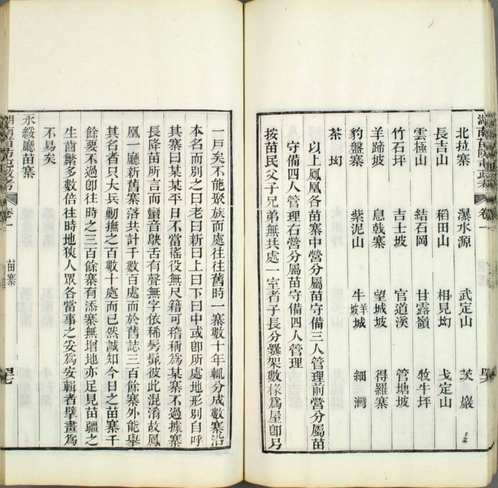 湖南苗防屯政考 卷一
北拉寨 瀑水源 武定山 茨巖
長吉山 稻田山 相見坳 戈定山
雲極山 結石岡 甘露嶺 牧牛坪
竹石坪 吉土坡 官道溪 管塘坡
羊蹄坡 息戟寨 望城坡 得羅寨
豹盤寨 柴泥山 細灣
茶坳
以上鳳凰各苗寨中營分屬苗守備三人管理前營分屬苗
守備四人管理右營分屬苗守備四人管理
按苗民父子兄弟無共處一室者子長分爨架數椽為屋即另
一戶矣不能聚族而處往往舊時一寨數十年輒分成數寨沿
本名而別之曰老曰新曰上曰下曰中或即所處地形別自呼
其寨曰某某平日不當徭役無尺籍可稽稱為某寨不過據寨
長降苗所言而蠻音鴃舌有聲無字依稀髣髴彼此混淆故鳳
凰一廳新舊寨落共計千數百處而於舊志三百餘寨外能舉
其名者只大兵勦撫之百數十處而已然誠知今日之苗寨千
餘要不過即往時之三百餘寨有添寨無增地亦足見苗疆之
生齒繁多數倍往時地狹人眾各當事之安為安輯者擘畫為
不易矣
永綏廳苗寨
湖南苗防屯政考 卷一 苗寨